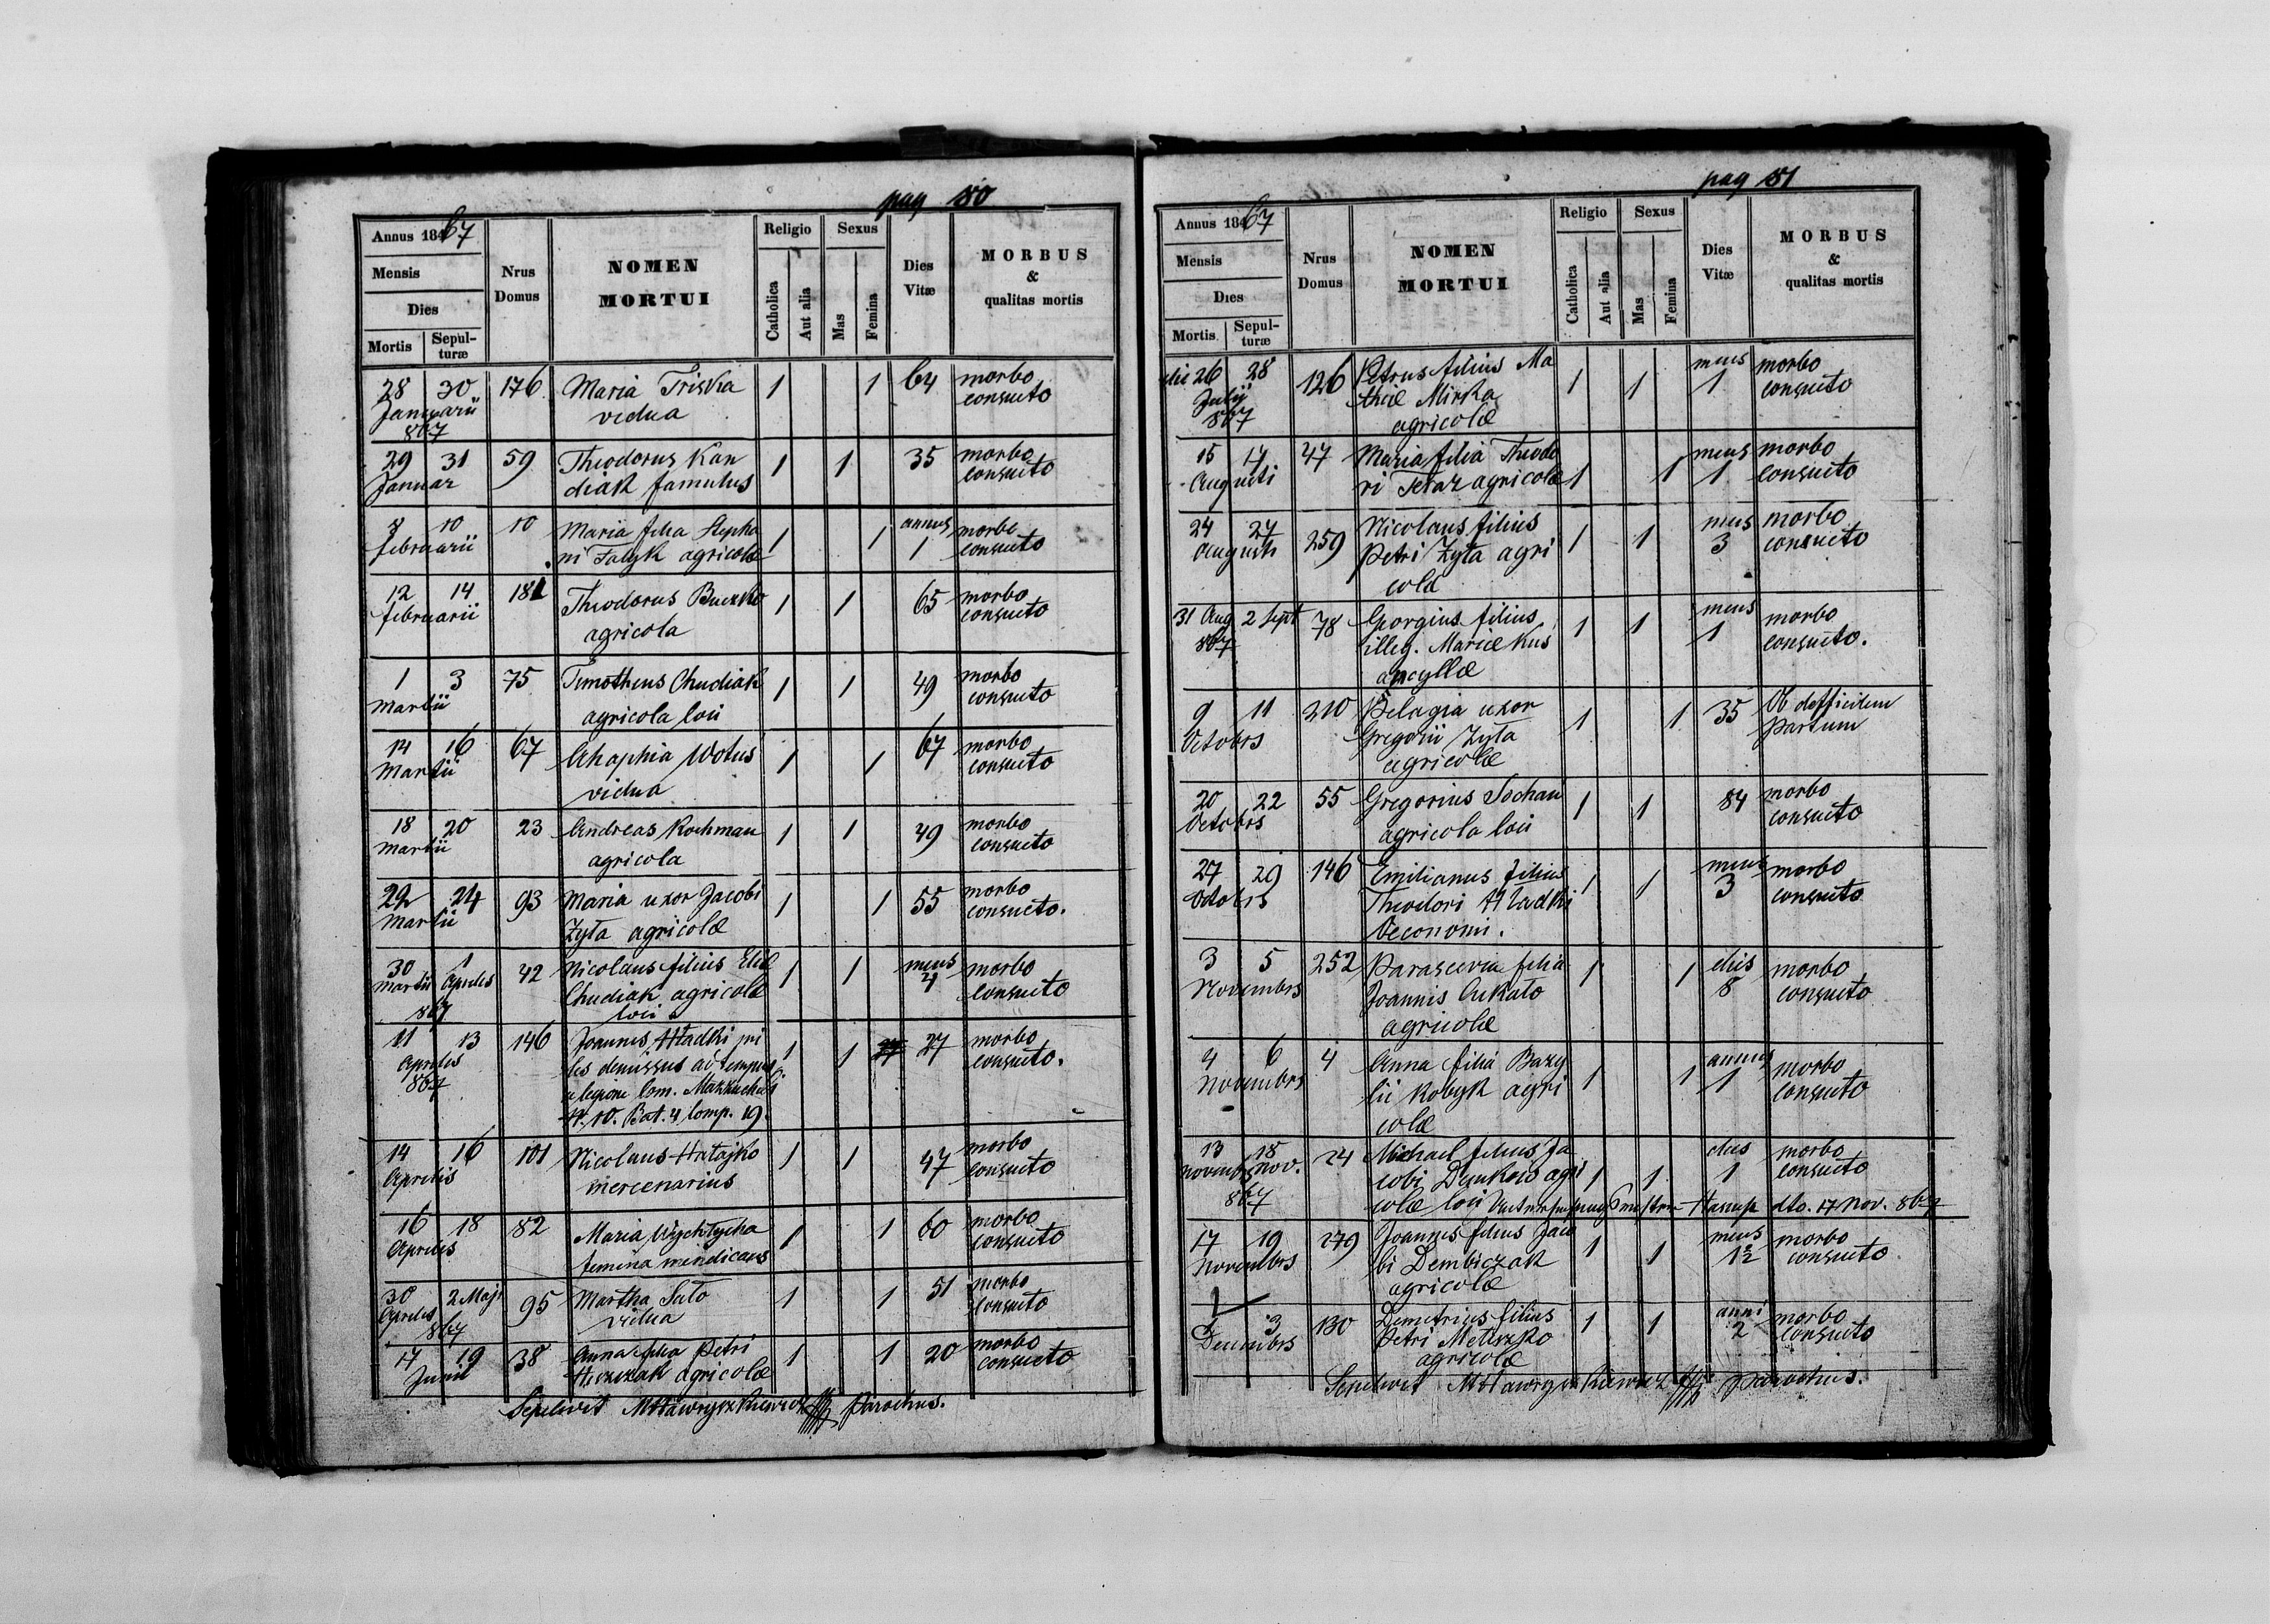 pag 80
Annus 1867
Mensis
Dies
Mortis Sepulturæ
Nrus Domus
NOMEN MORTUI
Religio
Catholica Aut alia
Sexus
Mas Femina
Dies Vitæ
MORBUS & qualitas mortis
28 30 176 Maria Triska 1 1 64 morbo
Januarii vidua consueto
867
29 31 59 Theodorus Kan 1 1 35 morbo
Januar diak famulus consueto
8 10 10 Maria filia Stepha 1 1 annus morbo
februarii ni Fatyk agricolæ 1 consueto
12 14 181 Theodorus Buczko 1 1 65 morbo
februarii agricola consueto
1 3 75 Timotheus Chudiak 1 1 49 morbo
Martii agricola loci consueto
14 16 67 Ahaphia Wotus 1 1 67 morbo
Martii vidua consueto
18 20 23 Andreas Kochman 1 1 49 morbo
Martii agricola consueto
22 24 93 Maria uxor Jacobi 1 1 55 morbo
Martii Zyta agricolæ consueto.
30 1 42 Nicolaus filius Eliæ 1 1 mens morbo
Martii Aprilis Chudiak agricolæ 4 consueto
867 loci
11 13 146 Joannes Hladki mi 1 1 27 morbo
Aprilis les demissus ad tempus consueto.
867 e legione com. Mazzucheli
N. 10. Bat. 4 Comp. 19.
14 16 101 Nicolaus Hatajko 1 1 47 morbo
Aprilis mercenarius consueto
16 18 82 Maria Wychtycha 1 1 60 morbo
Aprilis femina mendicans consueto
30 2 Maji 95 Martha Sato 1 1 51 morbo
Aprilis vidua consueto
867
17 19 38 Anna filia Petri 1 1 20 morbo
Junii agricolæ consueto
Sepelivit parochus.
pag 81
Annus 1867
Mensis
Dies
Mortis Sepulturæ
Nrus Domus
NOMEN MORTUI
Religio
Catholica Aut alia
Sexus
Mas Femina
Dies Vitæ
MORBUS & qualitas mortis
die 26 28 126 Petrus filius Ma 1 1 mens morbo
Julij thiæ Mirka 1 consueto
867 agricolæ
15 17 47 Maria filia Theodo 1 1 mens morbo
Augusti ri Tetaz agricolæ 1 consueto
24 27 259 Nicolaus filius 1 1 mens morbo
Augusti Petri Zyta agri 3 consueto
colæ
31 Aug 2 Sept 78 Georgius filius 1 1 mens morbo
867 illeg. Mariæ Kus 1 consueto.
ancyllæ
9 11 210 Pelagia uxor 1 1 35 Ob difficilem
Octobrs Gregorii Zyta partum
agricolæ
20 22 55 Gregorius Sochan 1 1 84 morbo
Octobrs agricola loci consueto
27 29 146 Emilianus filius 1 1 mens morbo
Octobrs Theodori Hladki 3 consueto
Oeconomi.
3 5 252 Parascevia filia 1 1 dies morbo
Novembrs Joannis Cukato 8 consueto
agricolæ
4 6 4 Anna filia Bazy 1 1 annus morbo
Novembrs lii Kobyk agri 1 consueto
colæ
13 18 24 Michael filius Ja 1 1 dies morbo
Novembr Nov. cobi Dzunkow agri 1 consueto
867 colæ loci dto. 17 Nov. 867
17 19 279 Joannes filius Jaco 1 1 mens morbo
Novembrs bi Dembiczak 1½ consueto
agricolæ
1 3 130 Demetrius filius 1 1 anni morbo
Decembrs Petri Meliszko 2 consueto
agricolæ
Sepelivit parochus.